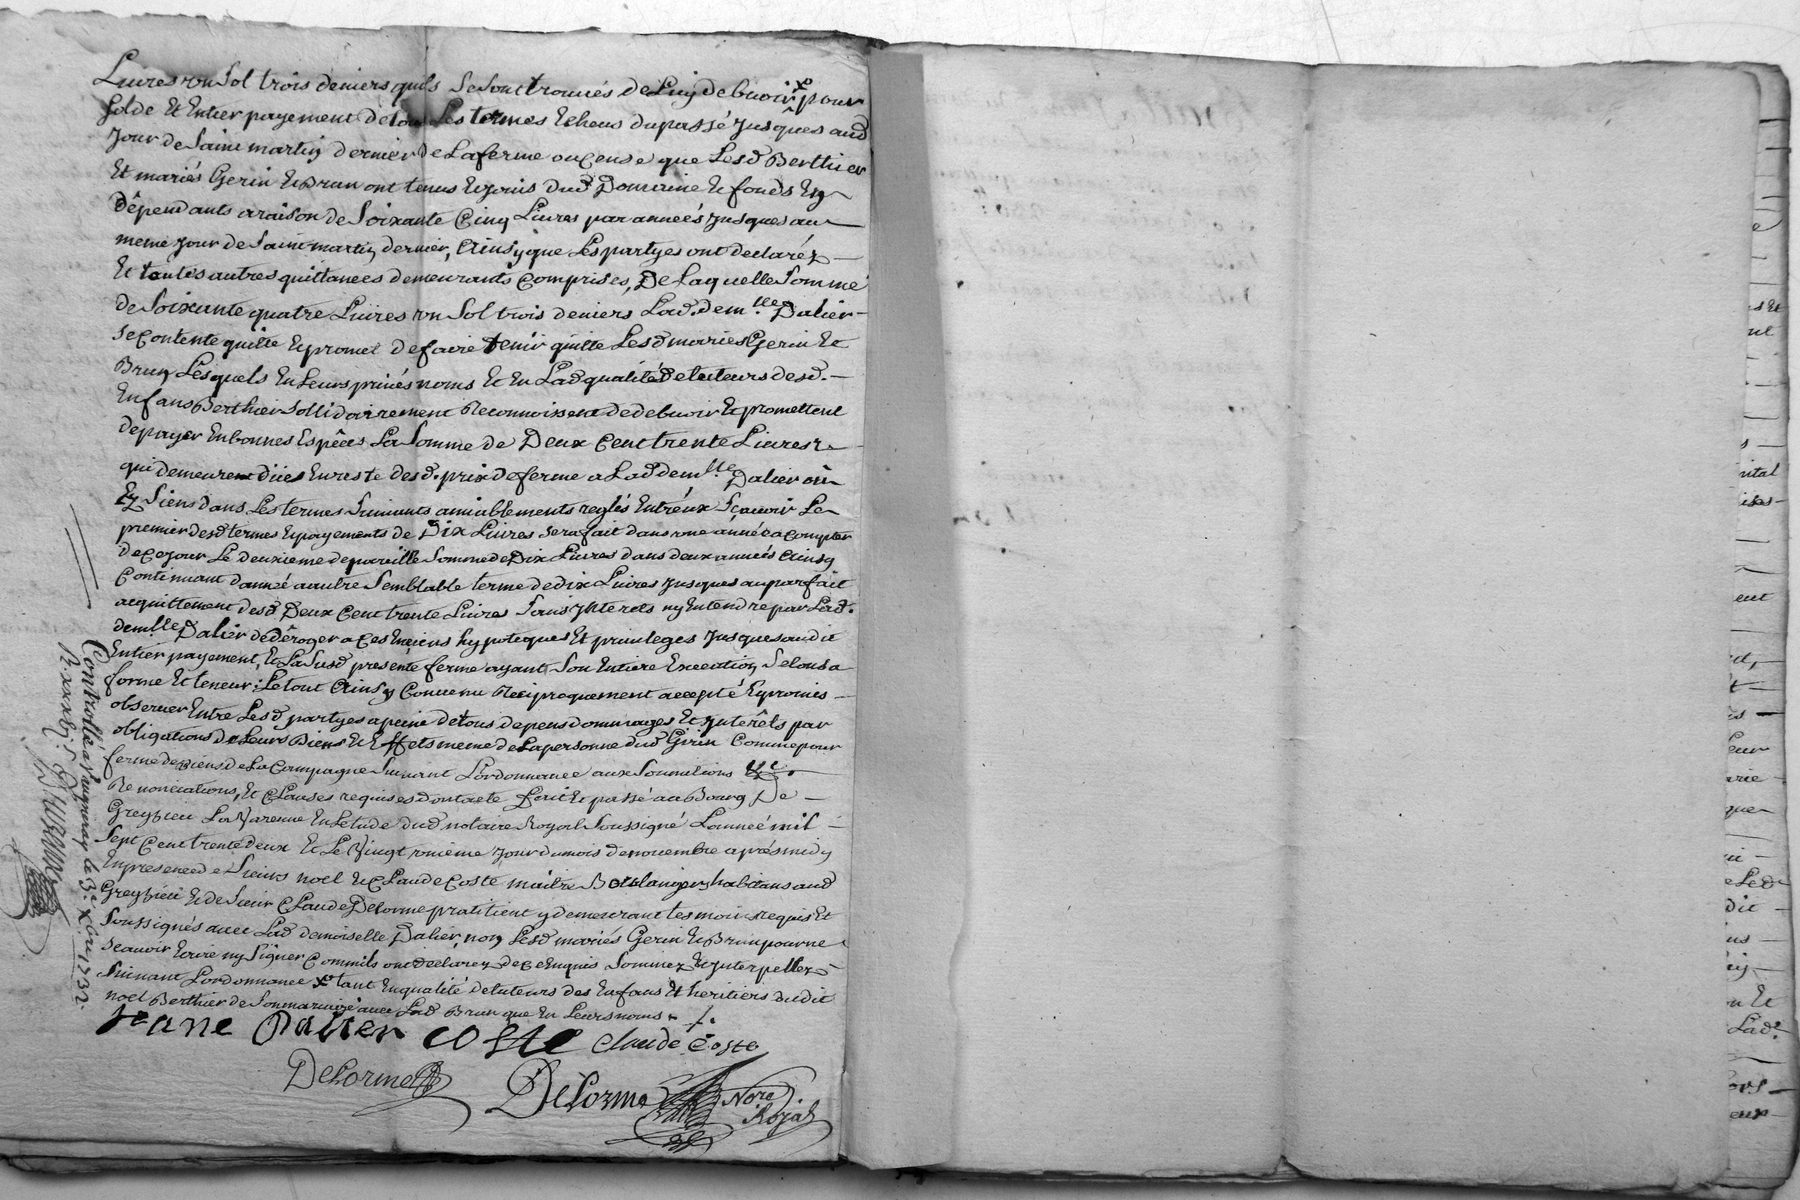 Livres un sol trois deniers quils se sont trouvés de Luy debvoir x pour
solde et Entier payement de tous les termes Echeus du passé jusques aud
jour de saint martin dernier de La ferme ou cense que Lesd Berthier
Et mariés Gerin et Brun ont tenus et jouis dud Domaine et fonds En
Dêpendants a raison de soixante Cinq Livres par anneés jusques au
meme jour de saint martin dernier, Ainsy que Les partyes ont declaréz
Et toutes autres quittances demeurants Comprises, De Laquelle somme
de soixante quatre Livres un sol trois deniers Lad. demlle Dalier
se Contente quitte et promet de faire tenir quitte Lesd mariés Gerin Et
Brun Lesquels En Leurs privés noms Et En Lad qualité de tuteurs desd.
Enfans Berthier sollidairement Reconnoissent de debvoir Et promettent
de payer En bonnes Espêces La somme de Deux Cent trente Livres
qui demeurent diies En reste desd. prix de ferme a Lad demlle Dalier ou
Ez siens dans Les termes suivants amiablements reglés Entréux scavoir Le
premier desd termes Et payements de Dix Livres sera fait dans une année a compter
de ce jour Le deuxieme de pareille somme de Dix Livres dans deux années Ainsy
Continuant danneé a autre semblable terme de dix Livres jusques au parfait
acquittement desd Deux Cent trente Livres sans jnterets ny Entendre par Lad.
demlle Dalier de dêroger a ces Enciens hypoteques Et privileges jusques audit
Entier payement, Et La susd presente ferme ayant son Entiere Execution selon sa
forme Et teneur; Le tout Ainsy Convenu Reciproquement accepté Et promis
observer Entre Lesd partyes a peine de tous depens dommages Et jnterêts par
obligations de Leurs Biens Et Effets meme de La personne dud Girin Comme pour
ferme de Biens de La Campagne suivant Lordonnance aux soumitions
Renonciations, Et Clauses requises dont acte fait Et passé au Bourg De
Greyzieu La Varenne En Letude dud notaire Royal soussigné Lanneé mil
sept Cent trente deux Et Le Vingt unième jour du mois de novembre aprés midy
En presence de sieurs noel Et Claude Coste maitre Boulangers habitans aud
Greyzieu Et de sieur Claude Delorme pratitient y demeurant tesmoins requis Et
soussignés avec Lad demoiselle Dalier, non Lesd mariés Gerin Et Brun pour ne
scavoir Ecrire ny signer Comm'ils ont declarez de ce Enquis sommez Et jnterpellez
suivant Lordonnance x tant En qualité de tuteurs des Enfans Et heritiers dudit
noel Berthier de son mariage avec Lad Brun que En Leurs noms
Jeane Dalier Coste Claude Coste
Delorme
Delorme Nore
Royal
Controllé a le 3e xbre 1732